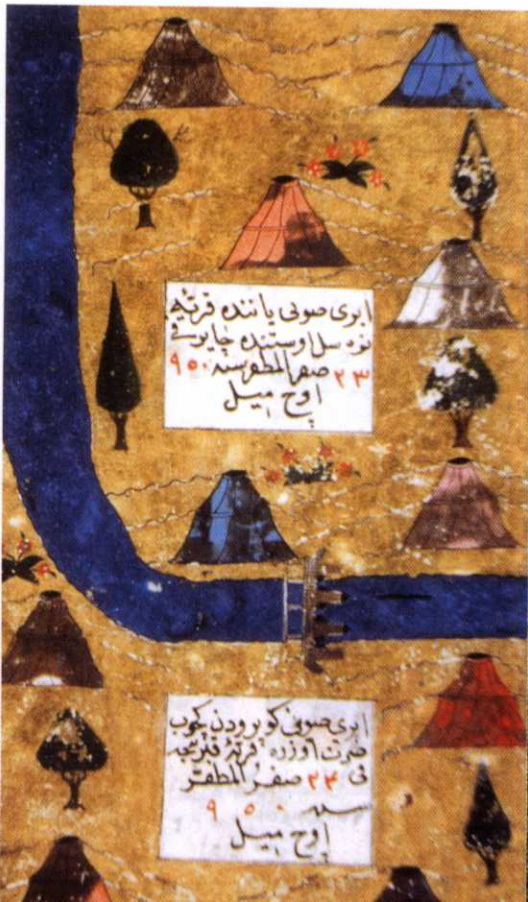 ایری صوئی یاننده قریهٔ
اوستنده چایری
۲۳ صفر المظفر سنه ۹۵۰
اوچ میل
ایری صوئی کوبرودن کچوب
صرت اوزره قریهٔ
فی ۲۴ صفر المظفر
سنه ۹۵۰
اوچ میل